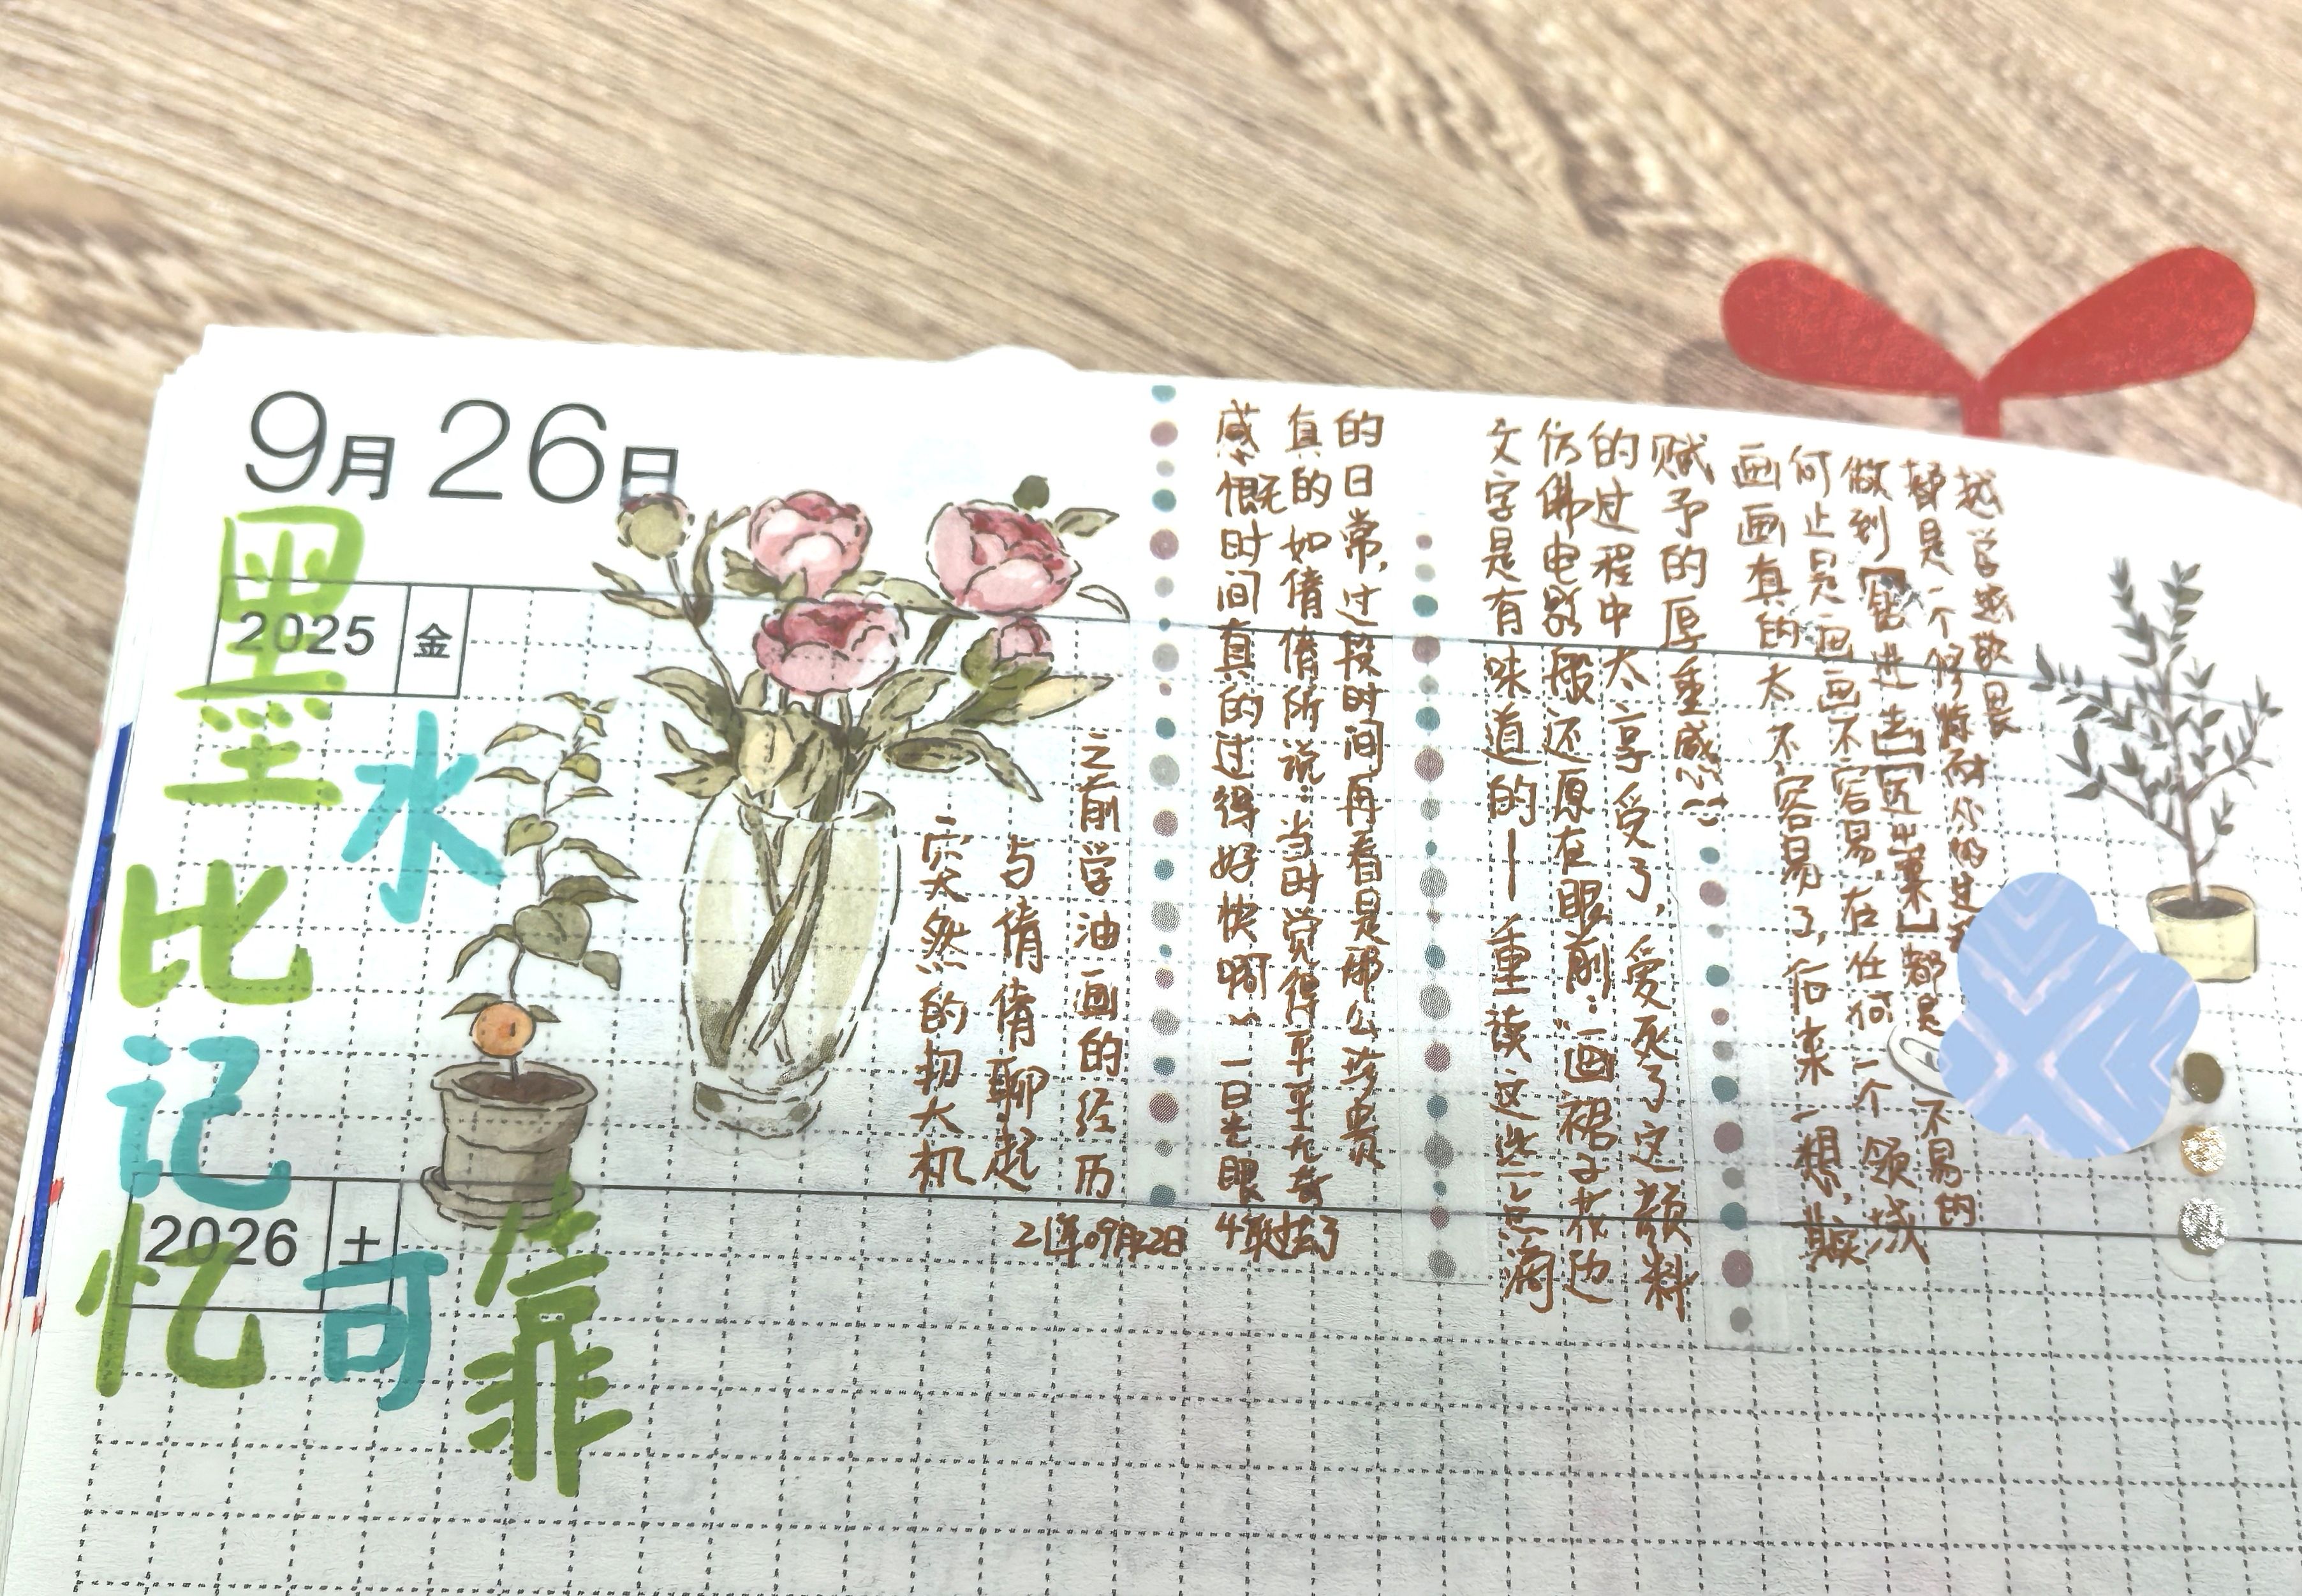 9月26日
2025 金
2026 土
墨水
比记忆可靠
突然的契机
与倩倩聊起
之前学油画的经历
21年09月22日
感慨时间真的过得好快啊~一晃眼
4年过去了
真的如倩倩所说：当时觉得平平无奇
的日常，过段时间再看是那么珍贵
文字是有味道的—重读这些点滴
仿佛电影般还原在眼前："画裙子花边
的过程中太享受了，爱死了这颜料
赋予的厚重感!!"
画画真的太不容易了，后来一想，
何止是画画不容易，在任何一个领域
做到【钻进去】【出来】都是不易的
都是一个修炼耐心的过程
越学越敬畏